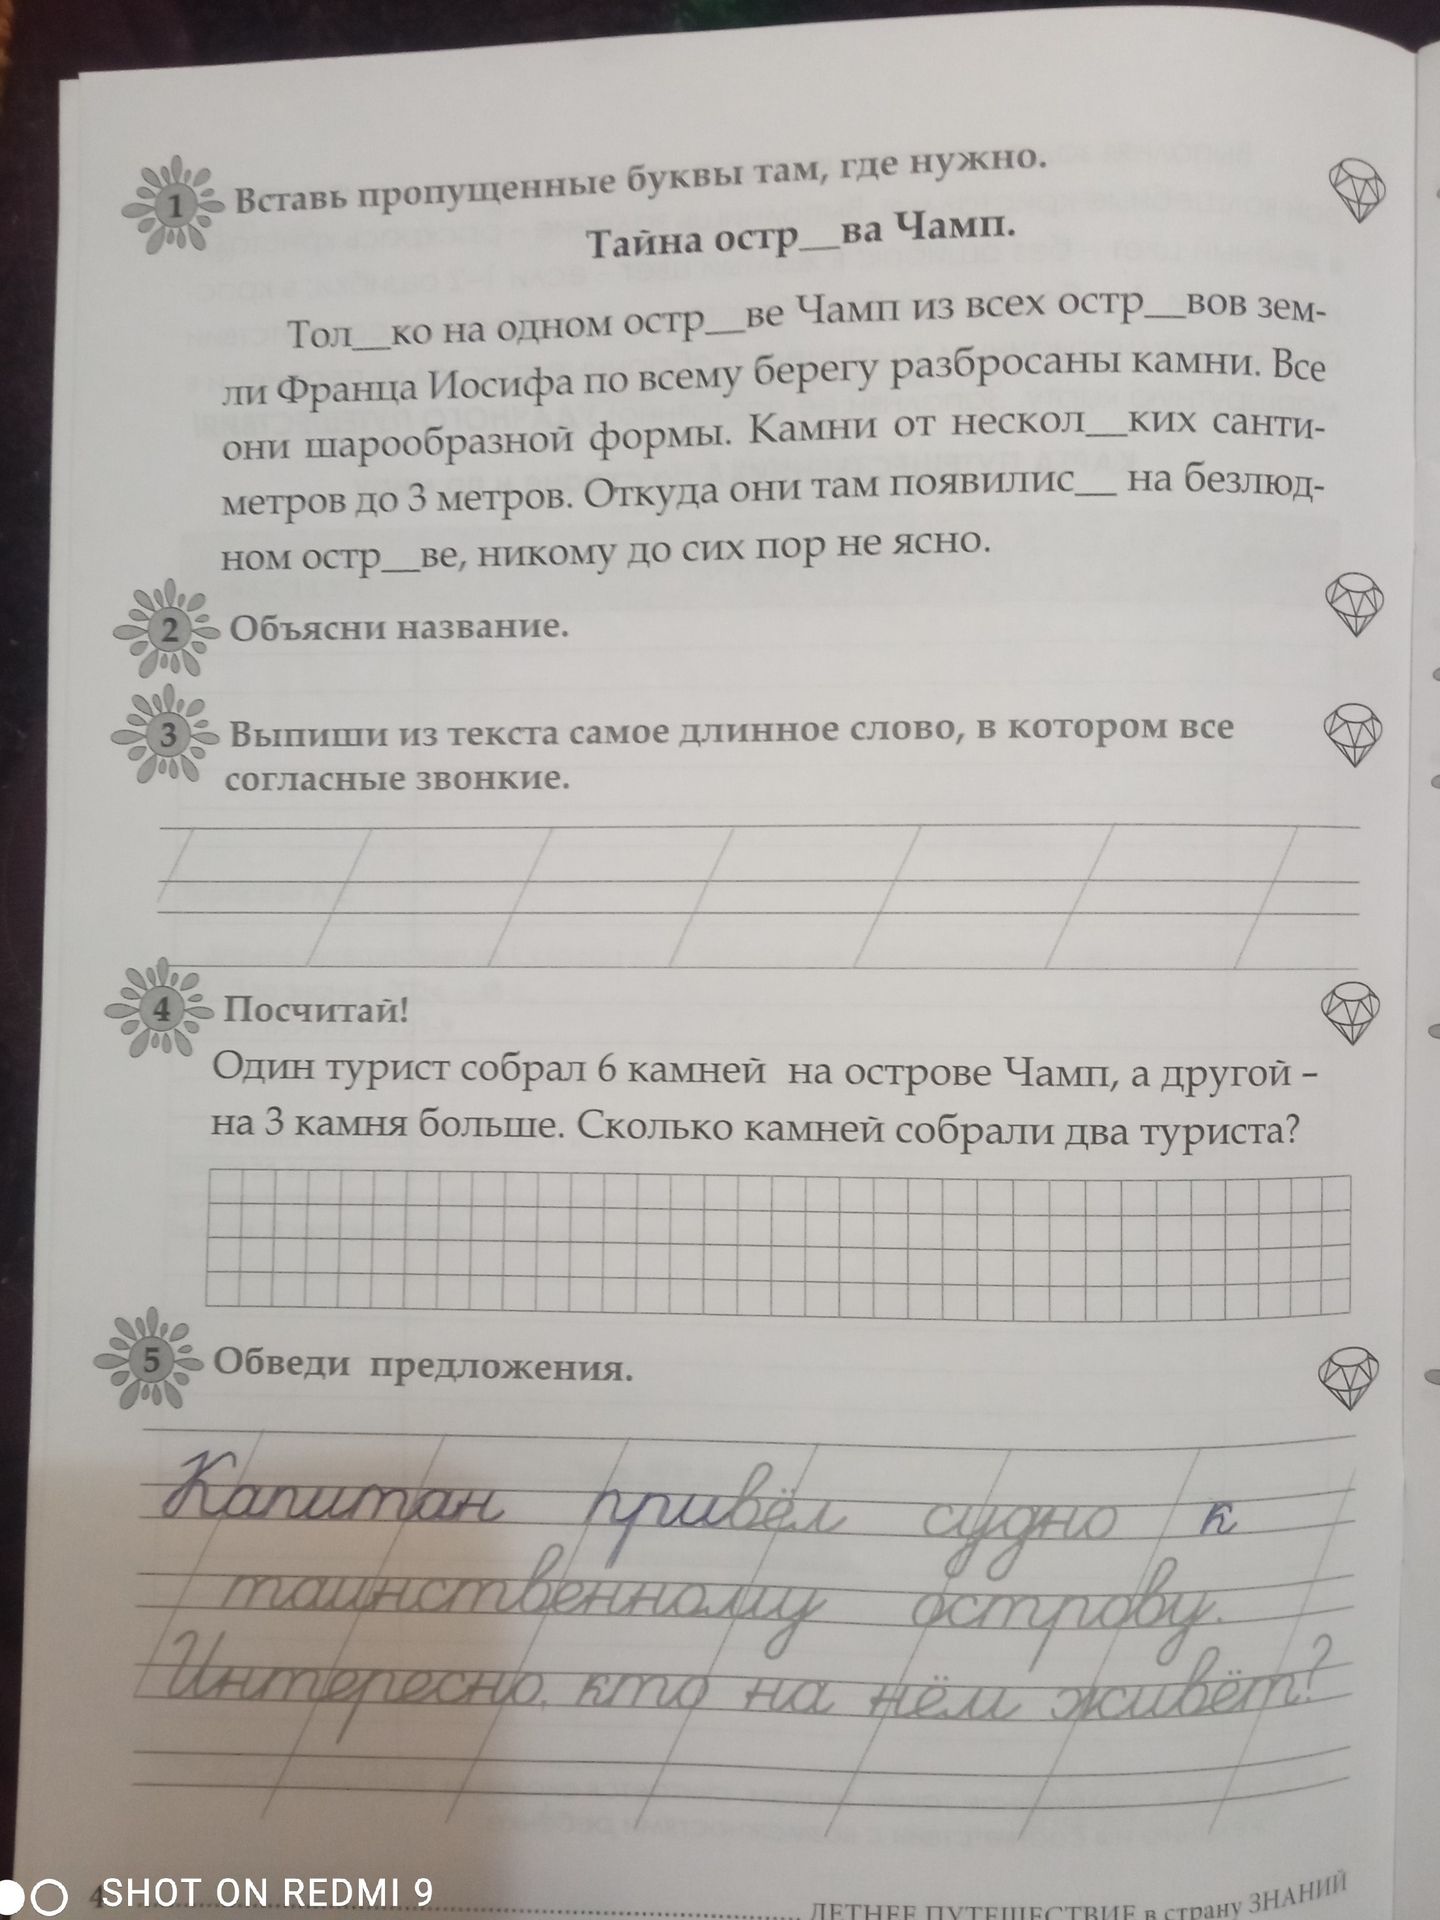 1 Вставь пропущенные буквы там, где нужно.
Тайна остр__ва Чамп.
Тол__ко на одном остр__ве Чамп из всех остр__вов зем-
ли Франца Иосифа по всему берегу разбросаны камни. Все
они шарообразной формы. Камни от нескол__ких санти-
метров до 3 метров. Откуда они там появилис__ на безлюд-
ном остр__ве, никому до сих пор не ясно.
2 Объясни название.
3 Выпиши из текста самое длинное слово, в котором все
согласные звонкие.
4 Посчитай!
Один турист собрал 6 камней на острове Чамп, а другой –
на 3 камня больше. Сколько камней собрали два туриста?
5 Обведи предложения.
Капитан привёл судно к
таинственному острову.
Интересно, кто на нём живёт?
4 SHOT ON REDMI 9
ЛЕТНЕЕ ПУТЕШЕСТВИЕ в страну ЗНАНИЙ